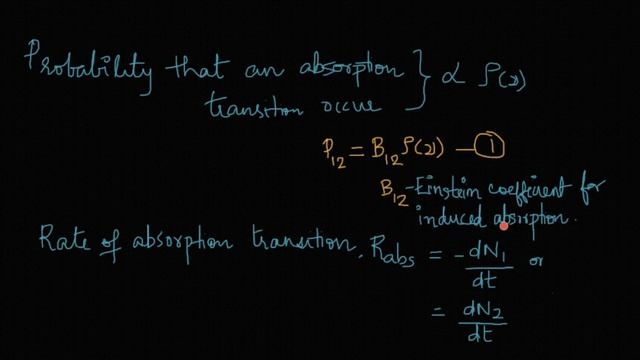 Probability that an absorption } ∝ ρ(ν)
transition occur
P₁₂ = B₁₂ ρ(ν) — ①
B₁₂ - Einstein coefficient for
induced absorption.
Rate of absorption transition, R_abs = - dN₁/dt or
= dN₂/dt